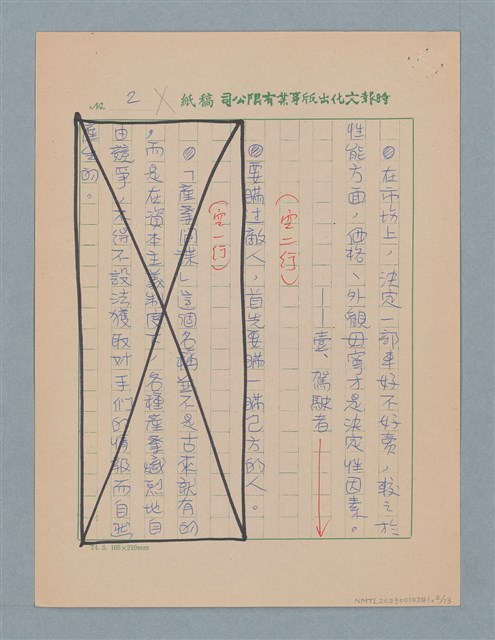 時報文化出版事業有限公司 稿紙
No. 2
◎在市場上，決定一部車好不好賣，較之於
性能方面，價格、外觀毋寧才是決定性因素。
——壹、駕駛者
(空二行)
◎要瞞过敵人，首先要瞞一瞞己方的人。
(空一行)
◎「產業間諜」這個名稱並不是古來就有的
，而是在資本主義制度下，各種產業熾烈地自
由競爭，不得不設法獲取対手們的情報而自然
產生的。
74. 5. 165×210mm